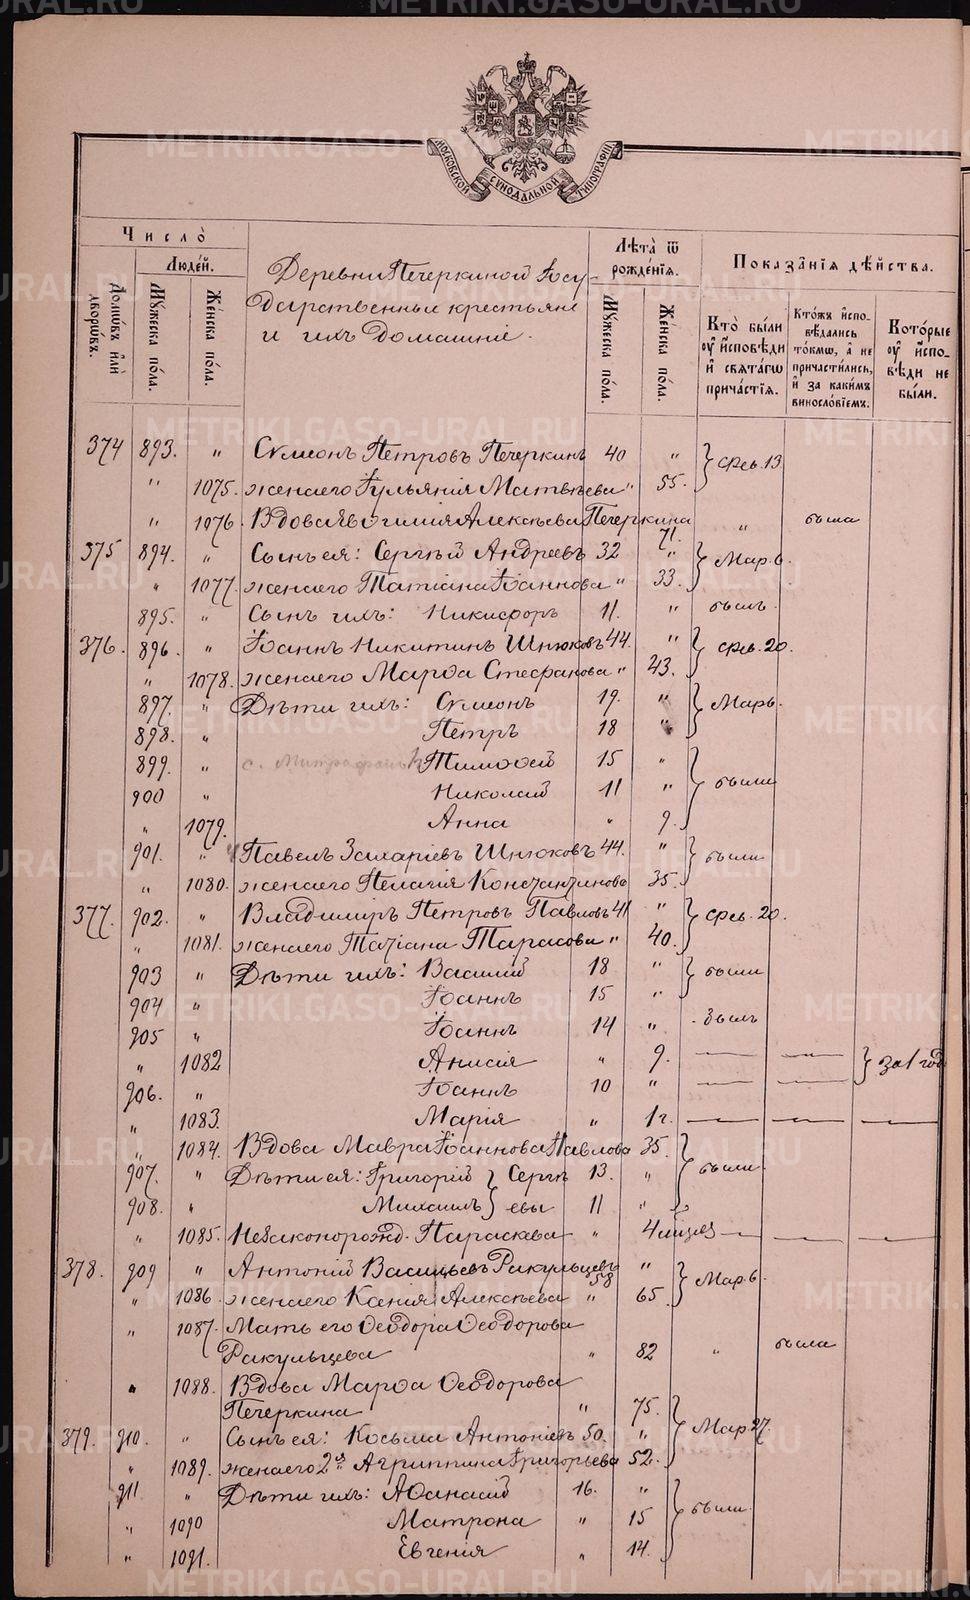 METRIKI.GASO-URAL.RU
МОСКОВСКОЙ СѴНОДАЛЬНОЙ ТИПОГРАФІИ
Число̀
Людей.
Домѡвъ или дворѡвъ.
Мужеска пола.
Женска пола.
Деревни Печеркиной Госу-
дарственные крестьяне
и ихъ домашніе.
Лѣта ѿ рожденїѧ.
Мужеска пола.
Женска пола.
Показанїѧ дѣйства.
Кто были оу исповѣди и свѧтагѡ причастїѧ.
Ктожъ исповѣдались токмѡ, а не причастились, и за какимъ винословїемъ.
Которые оу исповѣди не были.
374 893. " Сѵмеонъ Петровъ Печеркинъ 40 " Фев. 13
" 1075. жена его Іульянія Матвѣева " 55.
" 1076. Вдова Евѳимія Алексѣева Печеркина 71. " была
375 894. " Сынъ ея: Сергѣй Андреевъ 32 " Мар. 6.
" 1077. жена его Татіана Іоаннова " 33.
895. " Сынъ ихъ: Никифоръ 11. " былъ
376. 896. " Іоаннъ Никитинъ Шнюковъ 44. " Фев. 20.
" 1078. жена его Марѳа Стефанова " 43.
897. " Дѣти ихъ: Сѵмеонъ 19. " Мар 6.
898. " Петръ 18 "
899. " Тимоѳей 15 " были
900 " Николай 11 "
" 1079. Анна " 9.
901. " Павелъ Захаріевъ Шнюковъ 44. " были
" 1080. жена его Пелагія Константинова 35.
377. 902. " Владиміръ Петровъ Павловъ 41 " Фев. 20.
" 1081. жена его Татіана Тарасова " 40.
903 " Дѣти ихъ: Василій 18 " были
904 " Іоаннъ 15 "
905 " Іоаннъ 14 " былъ
" 1082 Анисія " 9. за 1 год
906. " Іоаннъ 10 "
" 1083. Марія " 1 г.
" 1084. Вдова Мавра Іоаннова Павлова 35. были
907. " Дѣти ея: Григорій } Сергѣ 13. "
908. " Михаилъ } евы 11 "
" 1085. Незаконорожд. Параскева " 4 мѣсяц
378. 909 " Антоній Васильевъ Ракульцевъ 58 " Мар. 6.
" 1086. жена его Ксенія Алексѣева " 65.
" 1087. Мать его Ѳеодора Ѳеодорова
Ракульцева " 82 " была
" 1088. Вдова Марѳа Ѳеодорова
Печеркина " 75. Мар 27.
379. 910. " Сынъ ея: Косьма Антоніевъ 50. "
" 1089. жена его 2я Агриппина Григорьева 52.
911 " Дѣти ихъ: Аѳанасій 16. " были
" 1090 Матрона " 15
" 1091. Евгенія " 14.